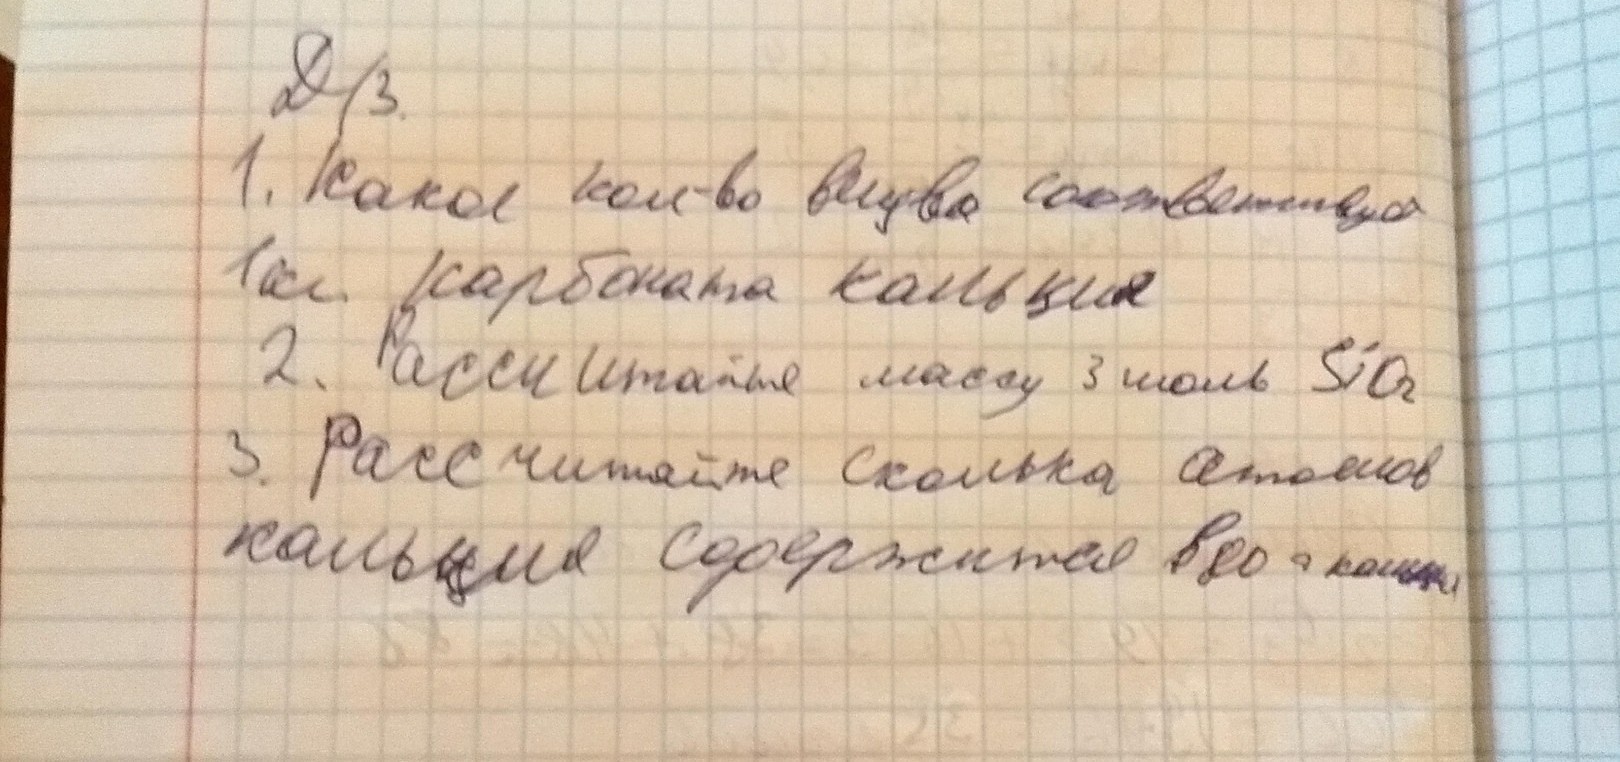 Д/З.
1. Какое кол-во вещ-ва соответствует
1кг. карбоната кальция
2. Рассчитайте массу 3 моль SiO2
3. Рассчитайте сколька атомов
кальция содержится в 80 г кальция